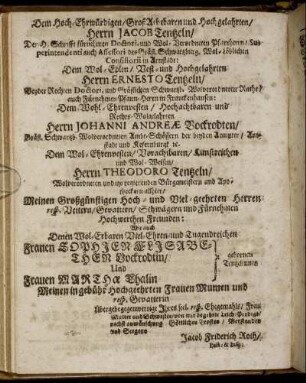 Dem Hoch-Ehrwürdigen/ Groß-Achtbaren und Hochgelahrten/
Herrn JACOB Tentzeln/
Der H. Schrifft Doctori, und Pfarrherrn/ Sup-
perintendenti auch Assessori des Gräfl. Schwartzburg. Wol-löblichen
Consistorii in Arnstadt:
Dem Wol-Edlen/ Vest- und Hochgelahrten
Herrn ERNESTO Tentzeln/
Beyder Rechten Doctori, und Gräflichen Schwartzb. Wolverordneten Rathe/
auch Fürnehmen Pfann-Herrn in Franckenhausen:
Dem Wohl-Ehrenvesten/ Hochachtbaren und
Rechts-Wolgelahrten
Herrn JOHANNI ANDREÆ Bockrodten/
Gräfl. Schwartzb. Wolverordneten Amts-Schössern der beyden Aempter/ Arn-
stadt und Käfernburg ic.
Dem Wol-Ehrenvesten/ Vorachtbaren/ Kunstreichen
und Wol-Weisen/
Herrn THEODORO Tentzeln/
Wolverordneten und Bürgermeistern und Apo-
theckern allhier/
Meinen Großgünstigen Hoch- und Viel-geehrten Herren
resp. Vettern/ Gevattern/ Schwägern und Fürnehmen
Hochwerthen Freunden:
Wie auch
Denen Wol-Erbaren Viel-Ehren- und Tugendreichen
Frauen SOPHIEN ELISABE-
THEN Bockrodtin/
Und
Frauen MARTHÆ Thalin
gebornen
Tentzelinnen
Meinen in gebühr Hochgeehrten Frauen Muhmen und
resp. Gevatterin
Übergebe gegenwertige Ihres sel. resp. Ehegemahls/ Frau
Mutter und Schwester/
nechst anwünschung Göttlichen Trostes/ Beystandes
und Segens
Jacob Friderich Roth/